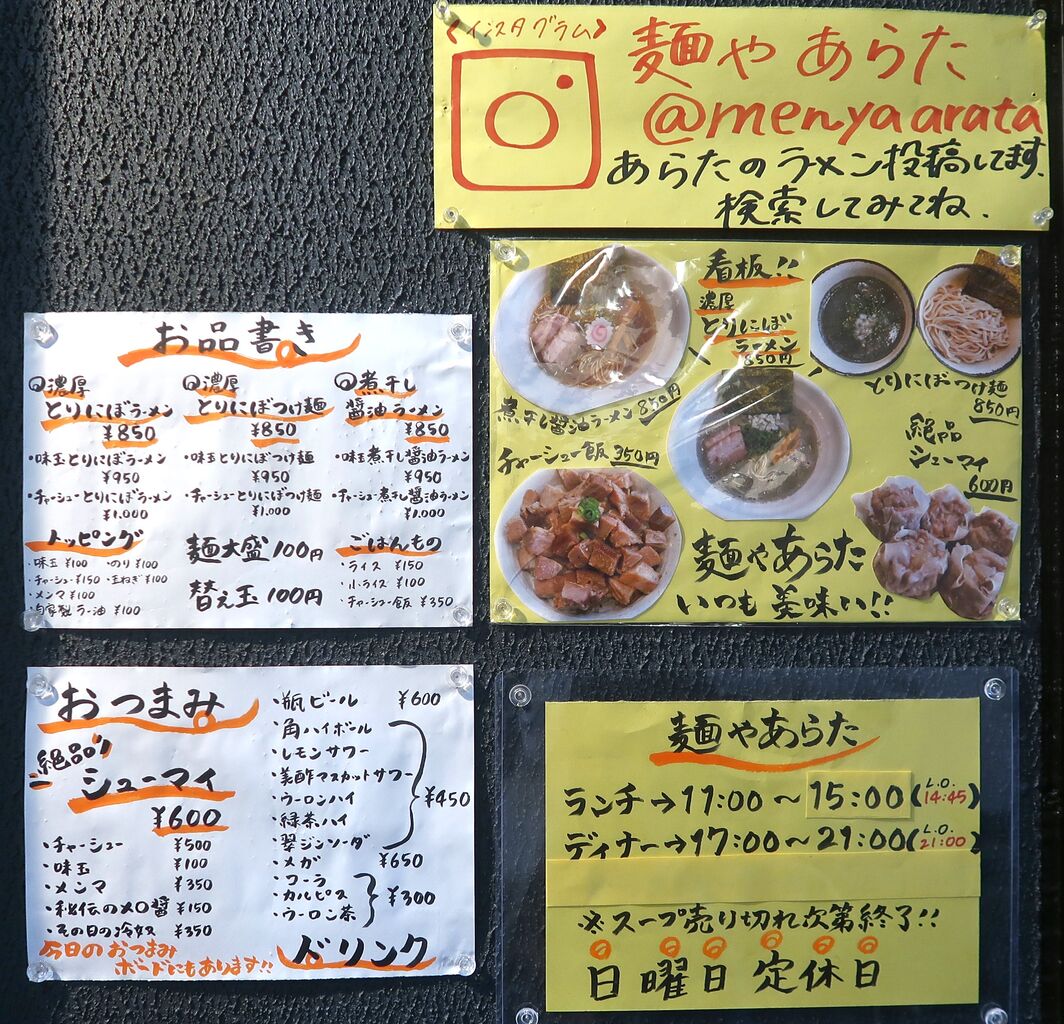 <インスタグラム>
麺や あらた
@menyaarata
あらたのラーメン投稿してます、
検索してみてね、
看板!!
濃厚
とりにぼ
ラーメン
850円
煮干し醤油ラーメン 850円
とりにぼつけ麺
850円
チャーシュー飯 350円
絶品
シューマイ
600円
麺やあらた
いつも美味い!!
お品書き
濃厚
とりにぼラーメン
¥850
・味玉とりにぼラーメン
¥950
・チャーシューとりにぼラーメン
¥1,000
濃厚
とりにぼつけ麺
¥850
・味玉とりにぼつけ麺
¥950
・チャーシューとりにぼつけ麺
¥1,000
煮干し
醤油ラーメン
¥850
・味玉煮干し醤油ラーメン
¥950
・チャーシュー煮干し醤油ラーメン
¥1,000
トッピング
・味玉 ¥100 ・のり ¥100
・チャーシュー ¥150 ・玉ねぎ ¥100
・メンマ ¥100
・自家製ラー油 ¥100
麺大盛 100円
替え玉 100円
ごはんもの
・ライス ¥150
・小ライス ¥100
・チャーシュー飯 ¥350
おつまみ
絶品
シューマイ
¥600
・チャーシュー ¥500
・味玉 ¥100
・メンマ ¥350
・秘伝の ¥150
・その日の冷奴 ¥350
今日のおつまみ
ボードにもあります!!
・瓶ビール ¥600
・角ハイボール
・レモンサワー
・美酢マスカットサワー
・ウーロンハイ
・緑茶ハイ
・翠ジンソーダ
¥450
・メガ ¥650
・コーラ
・カルピス
・ウーロン茶
¥300
ドリンク
麺やあらた
ランチ→11:00〜15:00(L.O. 14:45)
ディナー→17:00〜21:00(L.O. 21:00)
※スープ売り切れ次第終了!!
日曜日定休日